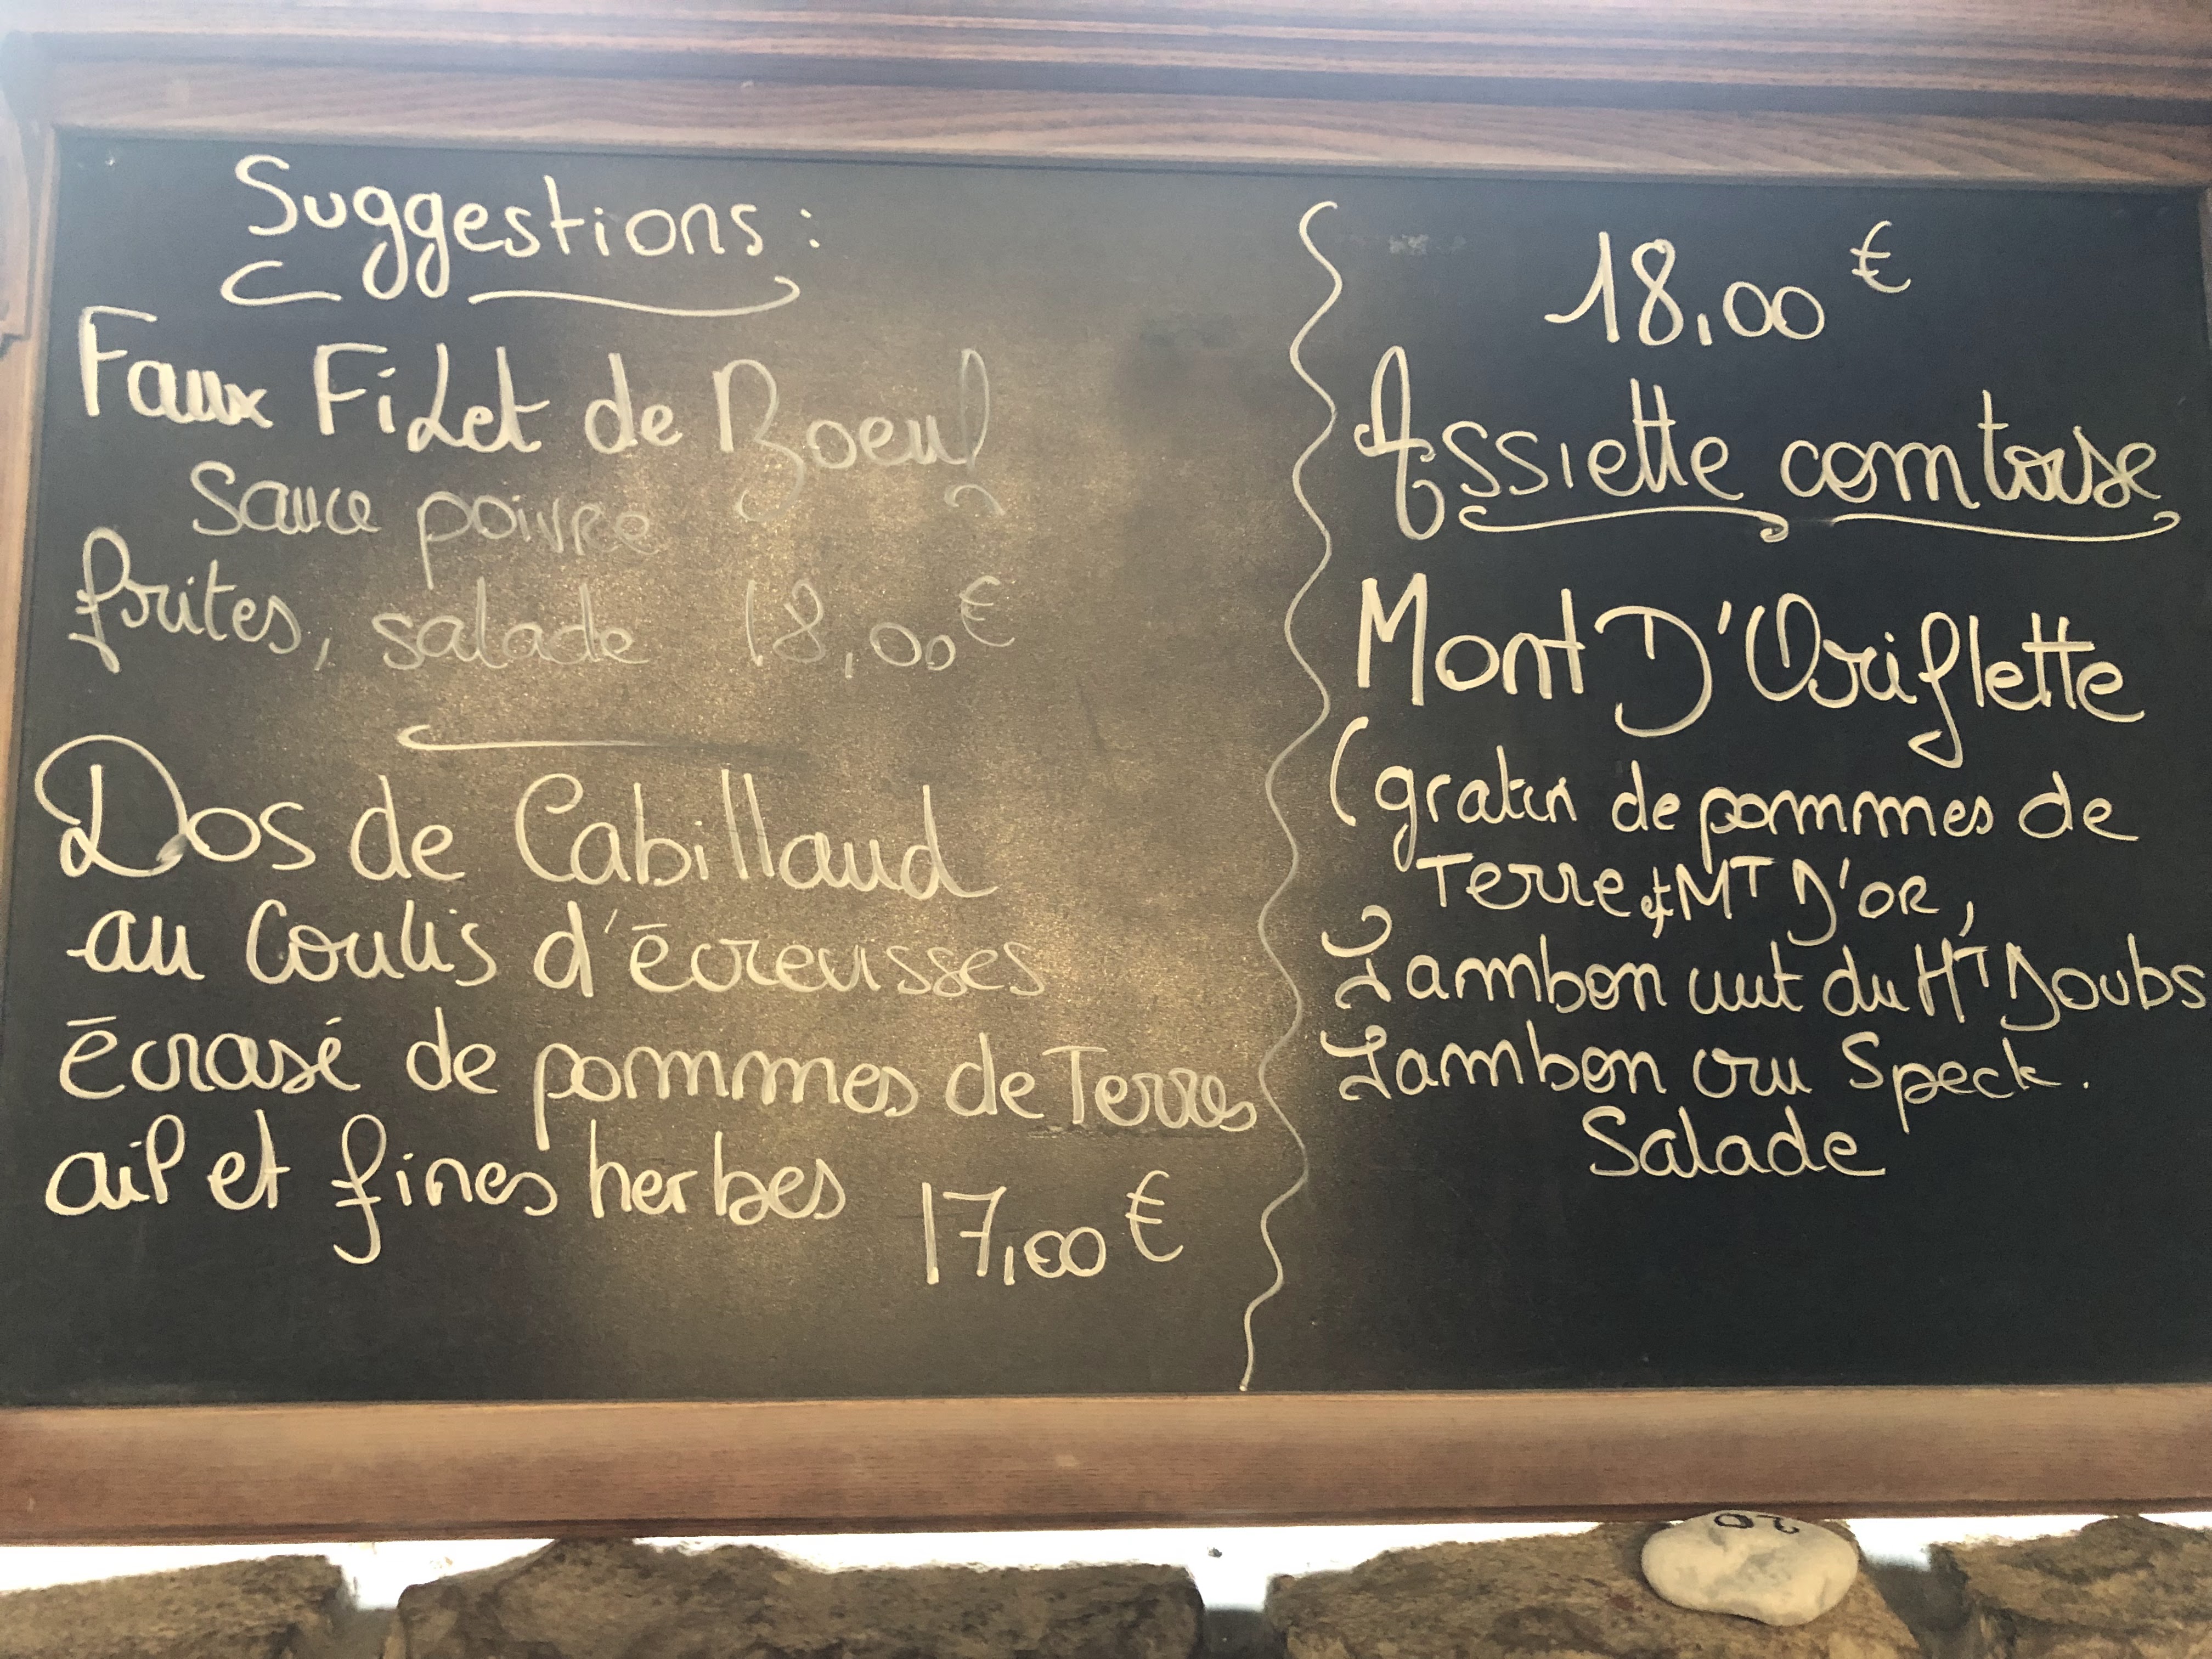 Suggestions :
Faux Filet de Boeuf
Sauce poivre
frites, salade 18,00€
Dos de Cabillaud
au Coulis d'écrevisses
écrasé de pommes de Terres
ail et fines herbes 17,00€
18,00€
Assiette comtoise
Mont D'Oriflette
(gratin de pommes de
Terre et MT D'OR,
Jambon cuit du HT Doubs
Jambon cru Speck.
Salade